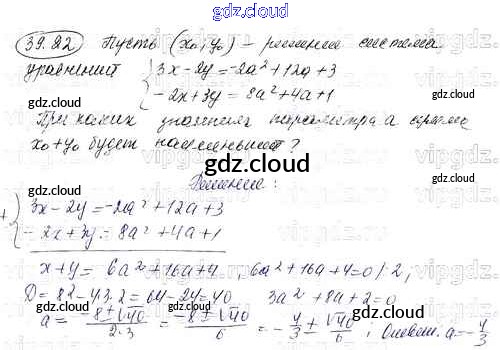 gdz.cloud
39.22 Пусть (x₀; y₀) – решение системы
уравнений { 3x - 2y = -2a² + 12a + 3
- 2x + 3y = 8a² + 4a + 1
При каких значениях параметра а сумма
x₀ + y₀ будет наименьшей?
gdz.cloud
Решение:
+ { 3x - 2y = -2a² + 12a + 3
- 2x + 3y = 8a² + 4a + 1
x + y = 6a² + 16a + 4, 6a² + 16a + 4 = 0 /:2,
D = 8² - 4·3·2 = 64 - 24 = 40 3a² + 8a + 2 = 0
a = (-8 ± √40)/(2·3) = (-8 ± √40)/6 = -4/3 ± √40/6; Ответ: a = -4/3
gdz.cloud